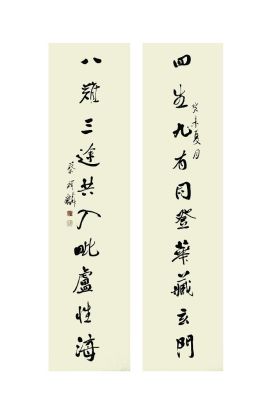 四生九有同登华藏玄門
癸未夏月
八難三途共入毗盧性海